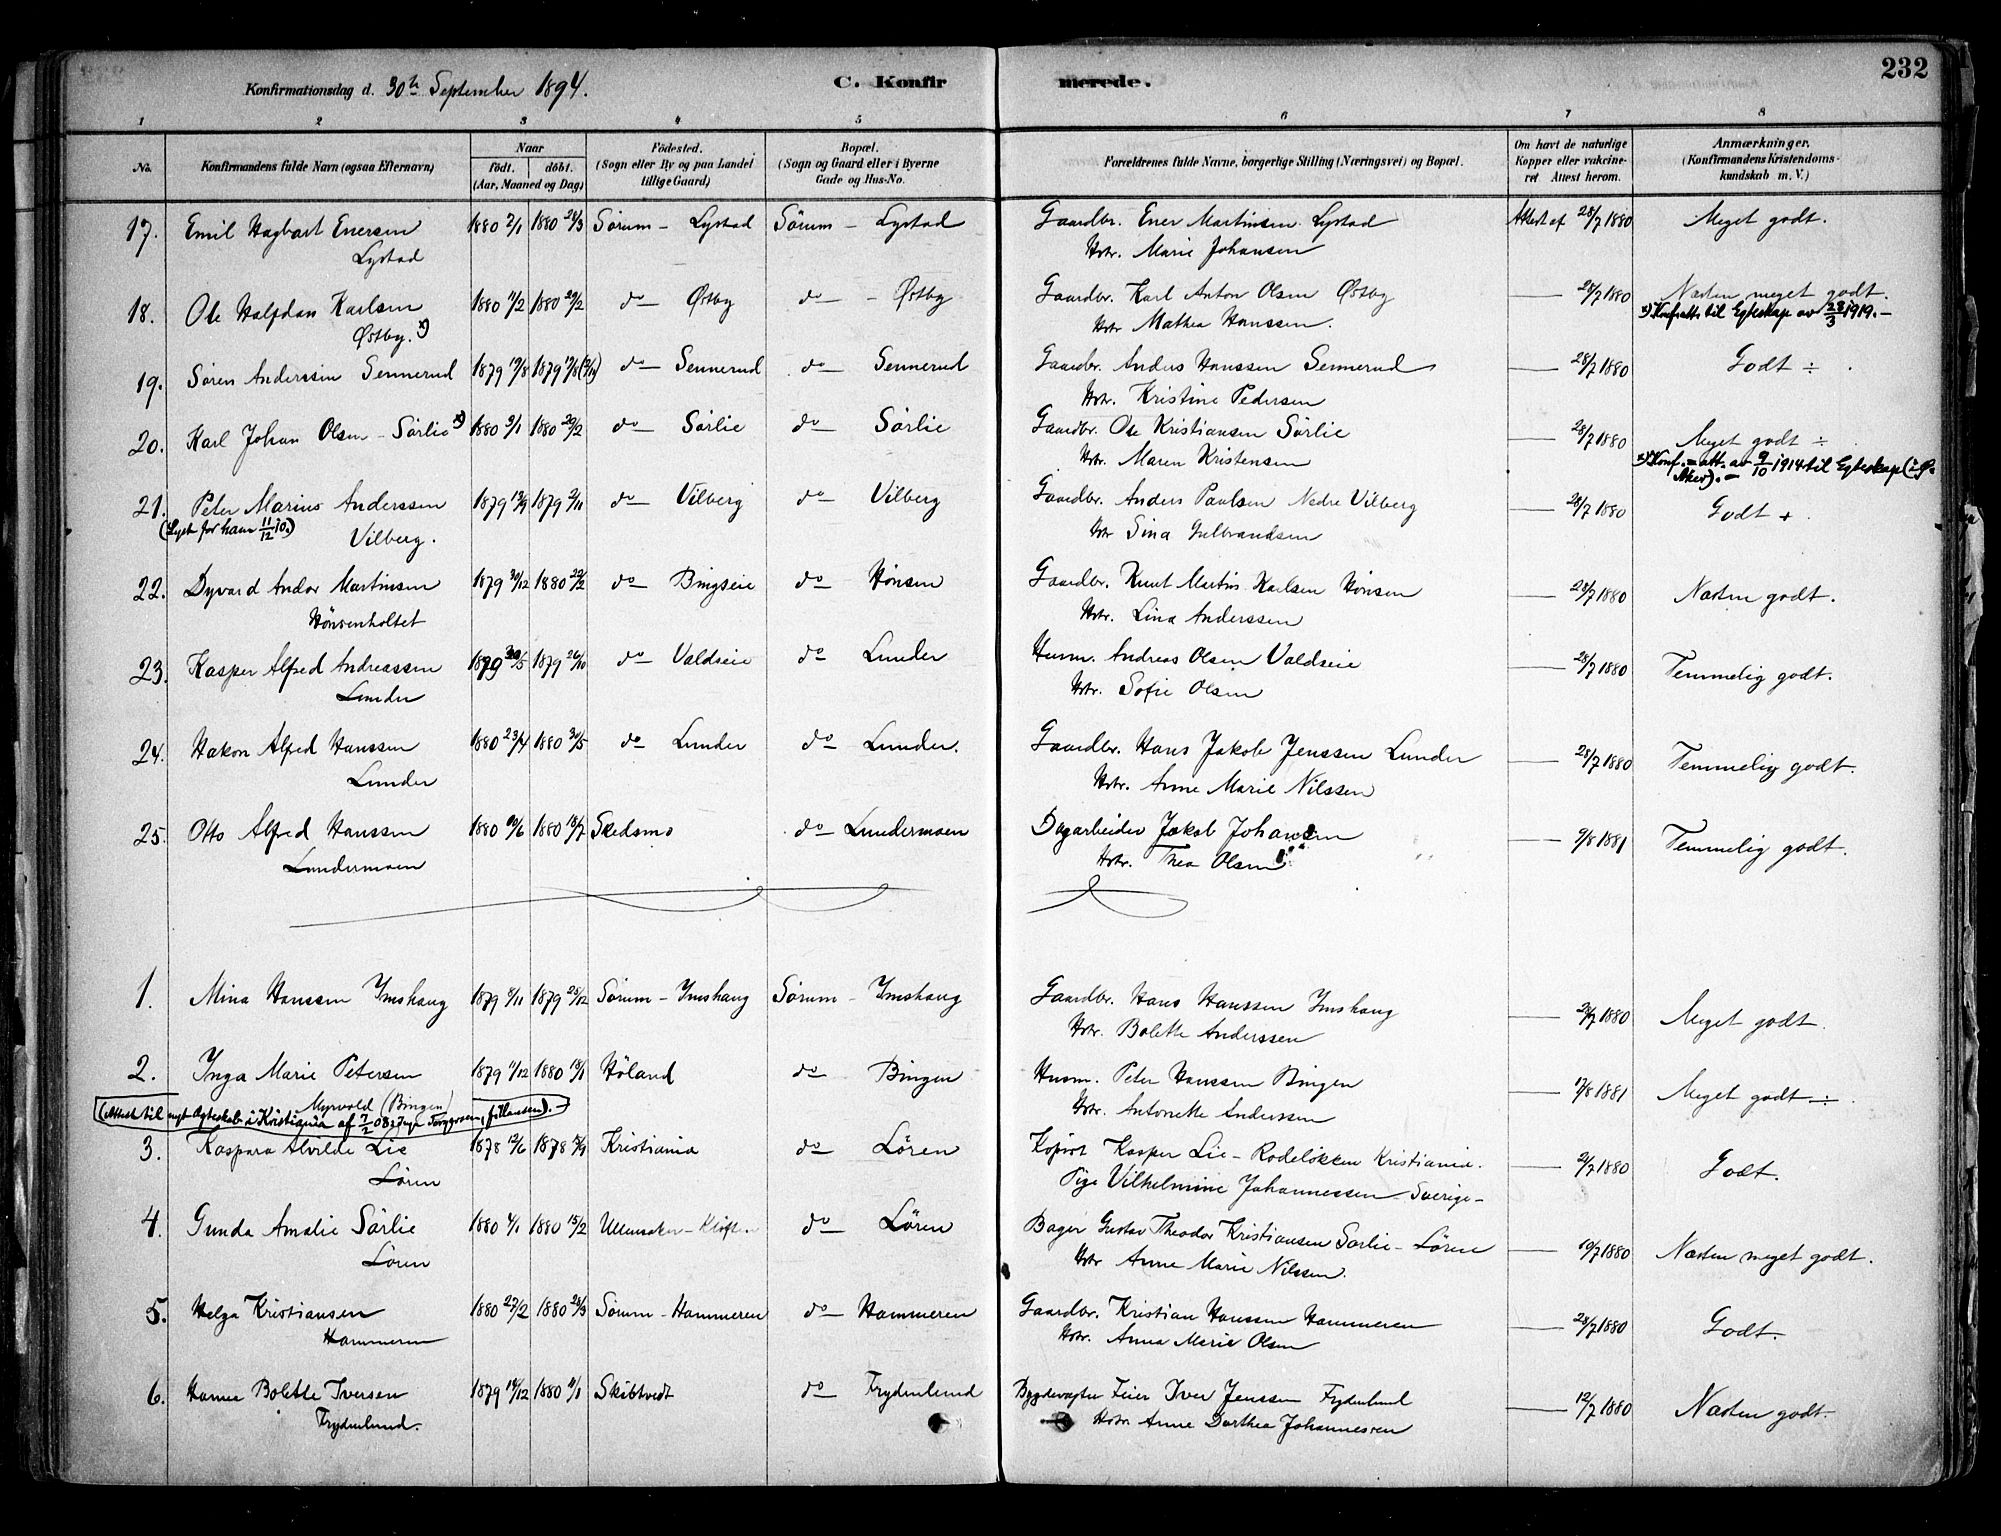 232
Konfirmationsdag d. 30te September 1894.
C. Konfirmerede.
1 2 3 4 5 6 7 8
No.
Konfirmandens fulde Navn (ogsaa Efternavn)
Naar
født. døbt.
(Aar, Maaned og Dag)
Fødested.
(Sogn eller By og paa Landet
tillige Gaard)
Bopæl.
(Sogn og Gaard eller i Byerne
Gade og Hus-No.
Forældrenes fulde Navne, borgerlige Stilling (Næringsvei) og Bopæl.
Om havt de naturlige
Kopper eller vakcine-
ret Attest herom.
Anmærkninger.
(Konfirmandens Kristendoms-
kundskab m. V.)
17. Emil Hagbart Enersen 1880 2/1 1880 28/3 Sørum – Lystad Sørum – Lystad Gaardbr. Ener Martinsen Lystad Attest af 28/7 1880 Meget godt.
Lystad Hstr. Marie Johansen
18. Ole Halfdan Karlsen 1880 11/2 1880 29/2 do – Østby do – Østby Gaardbr. Karl Anton Olsen Østby — 28/7 1880 Næsten meget godt.
Østby. x) Hstr. Mathea Hanssen. x) Konf.att. til Egteskap av 28/3 1919. –
19. Søren Anderssen Sennerud 1879 19/8 1879 do – Sennerud do – Sennerud Gaardbr. Anders Hanssen Sennerud — 28/7 1880 Godt ÷
Hstr. Kristine Pedersen
20. Karl Johan Olsen – Sørlie x) 1880 9/1 1880 29/2 do – Sørlie do – Sørlie Gaardbr. Ole Kristiansen Sørlie — 28/7 1880 Meget godt ÷
Hstr. Maren Kristensen x) Konf. = att. av 9/10 1914 til Egteskap (i Ø.
Aker). –
21. Peter Marius Anderssen 1879 13/9 1879 2/11 do – Vilberg do – Vilberg Gaardbr. Anders Paulsen Nedre Vilberg — 28/7 1880 Godt +
(Lyst for ham 11/12 10.) Vilberg. Hstr. Sina Gulbrandsen
22. Dyvard Andor Martinsen 1879 30/12 1880 22/2 do – Bingseie do – Hønsen Gaardbr. Knut Martin Karlsen Hønsen — 28/7 1880 Næsten godt.
Hønsenholtet Hstr. Lina Anderssen
23. Kasper Alfred Andreassen 1879 1879 26/10 do – Valdseie do Lunder Husm. Andreas Olsen Valdseie — 28/7 1880 Temmelig godt.
Lunder Hstr. Sofie Olsen
24. Hakon Alfred Hanssen 1880 23/4 1880 30/5 do Lunder do – Lunder. Gaardbr. Hans Jakob Jenssen Lunder — 28/7 1880 Temmelig godt.
Lunder Hstr. Anne Marie Nilssen
25. Otto Alfred Hanssen 1880 1880 18/7 Skedsmo do – Lundermoen Dagarbeider Jakob Johansen — 9/8 1881 Temmelig godt.
Lundermoen Hstr. Thea Olsen
1. Mina Hanssen Imshaug 1879 8/11 1879 25/12 Sørum – Imshaug Sørum – Imshaug Gaardbr. Hans Hanssen Imshaug — 1880 Meget godt.
Hstr. Bolette Anderssen
2. Inga Marie Petersen 1879 11/12 1880 18/1 Høland do – Bingen Husm. Peter Hanssen Bingen — 17/8 1881 Meget godt ÷
Myrvold (Bingen) Hstr. Antonette Anderssen
(Attest til nyt Ægteskab i Kristiania af 7/2 08:
3. Kaspara Alvilde Lie 1878 12/6 1878 Kristiania do – Løren Kopist Kasper Lie – Rodeløkken Kristiania. — 2/7 1880 Godt.
Løren Pige Vilhelmine Johannessen Sverige –
4. Gunda Amalie Sørlie 1880 4/1 1880 15/2 Ullensaker – Kløften do – Løren Bager Gustav Theodor Kristiansen Sørlie – Løren — 19/7 1880 Næsten meget godt.
Løren Hstr Anne Marie Nilssen.
5. Helga Kristiansen 1880 27/2 1880 28/3 Sørum – Hammeren do – Hammeren Gaardbr. Kristian Hanssen Hammeren — 28/7 1880 Godt.
Hammeren Hstr. Anna Marie Olsen
6. Hanna Bolette Iversen 1879 14/12 1880 11/1 Skibtvedt do – Frydenlund Bygdevægter Feier Iver Jenssen Frydenlund — 12/7 1880 Næsten godt.
Frydenlund. Hstr. Anne Dorthea Johannessen